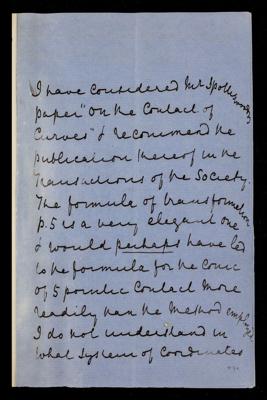 I have considered Mr Spottiswoodes
paper "On the Contact of
Curves" & recommend the
publication thereof in the
Transactions of the Society.
The formula of transformation
p. 5 is a very elegant one
& would perhaps have led
to the formula for the conic
of 5 pointic contact more
readily than the method employed
I do not understand in
what system of coordinates